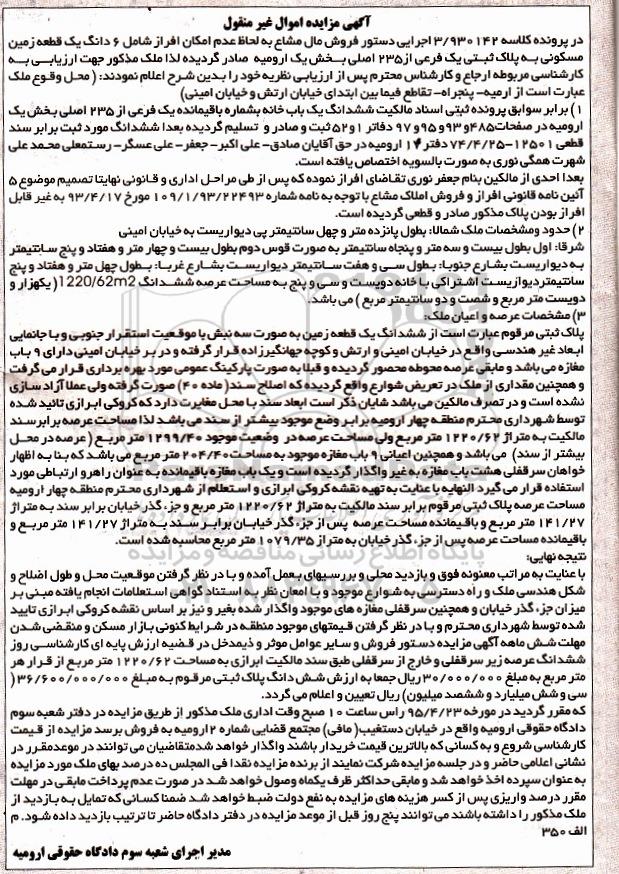 آگهی مزایده اموال غیر منقول
در پرونده کلاسه ۳/۹۳۰۱۴۲ اجرایی دستور فروش مال مشاع به لحاظ عدم امکان افراز شامل ۶ دانگ یک قطعه زمین
مسکونی به پلاک ثبتی یک فرعی از۲۳۵ اصلی بخش یک ارومیه صادر گردیده لذا ملک مذکور جهت ارزیابی به
کارشناسی مربوطه ارجاع و کارشناس محترم پس از ارزیابی نظریه خود را بدین شرح اعلام نمودند: ( محل وقوع ملک
عبارت است از ارمیه- پنجراه- تقاطع فیما بین ابتدای خیابان ارتش و خیابان امینی)
۱) برابر سوابق پرونده ثبتی اسناد مالکیت ششدانگ یک باب خانه بشماره باقیمانده یک فرعی از ۲۳۵ اصلی بخش یک
ارومیه در صفحات۴۸۵و ۹۳و ۹۵ و ۹۷ دفاتر ۱و۵۲ ثبت و صادر و تسلیم گردیده بعدا ششدانگ مورد ثبت برابر سند
قطعی ۱۲۵۰۱-۷۴/۴/۲۵ دفتر ۱۴ ارومیه در حق آقایان صادق- علی اکبر- جعفر- علی عسگر- رستمعلی محمد علی
شهرت همگی نوری به صورت بالسویه اختصاص یافته است.
بعدا احدی از مالکین بنام جعفر نوری تقاضای افراز نموده که پس از طی مراحل اداری و قانونی نهایتا تصمیم موضوع ۵
آئین نامه قانونی افراز و فروش املاک مشاع با توجه به نامه شماره ۱۰۹/۱/۹۳/۲۲۴۹۳ مورخ ۹۳/۴/۱۷ به غیر قابل
افراز بودن پلاک مذکور صادر و قطعی گردیده است.
۲) حدود ومشخصات ملک شمالا: بطول پانزده متر و چهل سانتیمتر پی دیواریست به خیابان امینی
شرقا: اول بطول بیست و سه متر و پنجاه سانتیمتر به صورت قوس دوم بطول بیست و چهار متر و هفتاد و پنج سانتیمتر
به دیواریست بشارع جنوبا: بطول سی و هفت سانتیمتر دیواریست بشارع غربا: بطول چهل متر و هفتاد و پنج
سانتیمتردیواریست اشتراکی با خانه دویست و سی و پنج به مساحت عرصه ششدانگ 1220/62m2( یکهزار و
دویست متر مربع و شصت و دو سانتیمتر مربع ) می باشد.
۳) مشخصات عرصه و اعیان ملک:
پلاک ثبتی مرقوم عبارت است از ششدانگ یک قطعه زمین به صورت سه نبش با موقعیت استقرار جنوبی و با جانمایی
ابعاد غیر هندسی واقع در خیابان امینی و ارتش و کوچه جهانگیرزاده قرار گرفته و در بر خیابان امینی دارای ۹ باب
مغازه می باشد و مابقی عرصه محوطه محصور گردیده و قبلا به صورت پارکینگ عمومی مورد بهره برداری قرار می گرفت
و همچنین مقداری از ملک در تعریض شوارع واقع گردیده که اصلاح سند( ماده ۴۰) صورت گرفته ولی عملا آزاد سازی
نشده است و در تصرف مالکین می باشد شایان ذکر است ابعاد سند با محل مغایرت دارد که کروکی ابرازی تائید شده
توسط شهرداری محترم منطقه چهار ارومیه برابر وضع موجود بیشتر از سند می باشد لذا مساحت عرصه برابر سند
مالکیت به متراژ ۱۲۲۰/۶۲ متر مربع ولی مساحت عرصه در وضعیت موجود ۱۲۹۹/۴۰ متر مربع ( عرصه در محل
بیشتر از سند) می باشد و همچنین اعیانی ۹ باب مغازه موجود به مساحت ۲۰۴/۴۰ متر مربع می باشد که بنا به اظهار
خواهان سرقفلی هشت باب مغازه به غیر واگذار گردیده است و یک باب مغازه باقیمانده به عنوان راهرو ارتباطی مورد
استفاده قرار می گیرد النهایه با عنایت به تهیه نقشه کروکی ابرازی و استعلام از شهرداری محترم منطقه چهار ارومیه
مساحت عرصه پلاک ثبتی مرقوم برابر سند مالکیت به متراژ ۱۲۲۰/۶۲ متر مربع و جزء گذر خیابان برابر سند به متراژ
۱۴۱/۲۷ متر مربع و باقیمانده مساحت عرصه پس از جزء گذر خیابان برابر سند به متراژ ۱۴۱/۲۷ متر مربع و
باقیمانده مساحت عرصه پس از جزء گذر خیابان به متراژ ۱۰۷۹/۳۵ متر مربع محاسبه شده است.
نتیجه نهایی:
با عنایت به مراتب معنونه فوق و بازدید محلی و بررسیهای بعمل آمده و با در نظر گرفتن موقعیت محل و طول اضلاح و
شکل هندسی ملک و راه دسترسی به شوارع موجود و با امعان نظر به استناد گواهی استعلامات انجام یافته مبنی بر
میزان جزء گذر خیابان و همچنین سرقفلی مغازه های موجود واگذار شده بغیر و نیز بر اساس نقشه کروکی ابرازی تایید
شده توسط شهرداری محترم و با در نظر گرفتن قیمتهای موجود منطقه در شرایط کنونی بازار مسکن و منقضی شدن
مهلت شش ماهه آگهی مزایده دستور فروش و سایر عوامل موثر و ذیمدخل در قضیه ارزش پایه ای کارشناسی روز
ششدانگ عرصه زیر سرقفلی و خارج از سرقفلی طبق سند مالکیت ابرازی به مساحت ۱۲۲۰/۶۲ متر مربع از قرار هر
متر مربع به مبلغ ۳۰/۰۰۰/۰۰۰ ریال جمعا به ارزش شش دانگ پلاک ثبتی مرقوم به مبلغ ۳۶/۶۰۰/۰۰۰/۰۰۰(
سی و شش میلیارد و ششصد میلیون) ریال تعیین و اعلام می گردد.
که مقرر گردید در مورخه ۹۵/۴/۲۳ راس ساعت ۱۰ صبح وقت اداری ملک مذکور از طریق مزایده در دفتر شعبه سوم
دادگاه حقوقی ارومیه واقع در خیابان دستغیب( مافی) مجتمع قضایی شماره ۲ ارومیه به فروش برسد مزایده از قیمت
کارشناسی شروع و به کسانی که بالاترین قیمت خریدار باشند واگذار خواهد شد متقاضیان می توانند در موعدمقرر در
نشانی اعلامی حاضر و در جلسه مزایده شرکت نمایند از برنده مزایده نقدا فی المجلس ده درصد بهای ملک مورد مزایده
به عنوان سپرده اخذ خواهد شد و مابقی حداکثر ظرف یکماه وصول خواهد شد در صورت عدم پرداخت مابقی در مهلت
مقرر درصد واریزی پس از کسر هزینه های مزایده به نفع دولت ضبط خواهد شد ضمنا کسانی که تمایل به بازدید از
ملک مذکور را داشته باشند می توانند پنج روز قبل از موعد مزایده در دفتر دادگاه حاضر تا ترتیب بازدید داده شود. م
الف ۳۵۰
مدیر اجرای شعبه سوم دادگاه حقوقی ارومیه